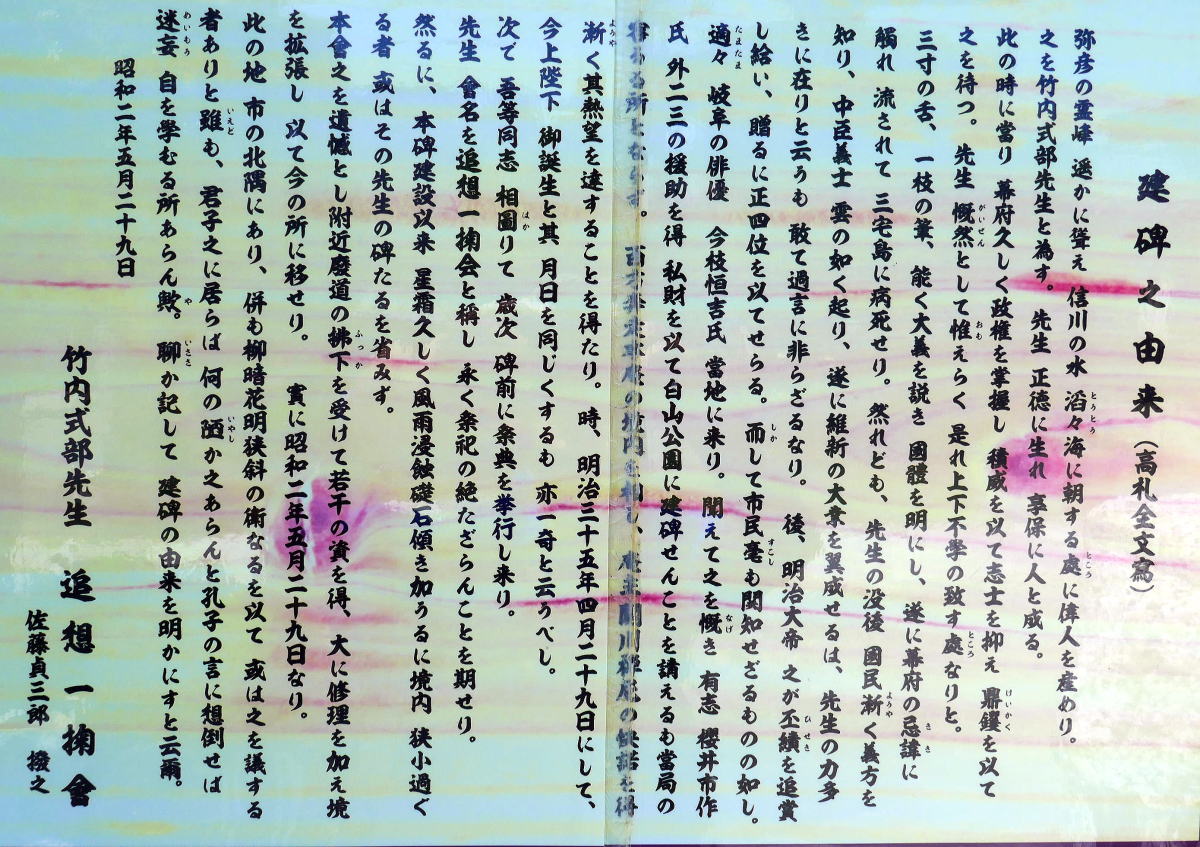 建碑之由来(高札全文寫)
弥彦の霊峰 遥かに聳え 信川の水 滔々海に朝する處に偉人を産めり。
之を竹内式部先生と為す。 先生 正徳に生れ 享保に人と成る。
此の時に當り 幕府久しく政権を掌握し 積威を以て志士を抑え 鼎鑊を以て
之を待つ。 先生 慨然として惟えらく 是れ上下不學の致す處なりと。
三寸の舌、一枝の筆、能く大義を説き 國體を明にし、遂に幕府の忌諱に
觸れ 流されて 三宅島に病死せり。然れども、先生の没後 國民漸く義方を
知り、中臣義士 雲の如く起り、遂に維新の大業を翼成せるは、先生の力多
きに在りと云うも 敢て過言に非らざるなり。 後、明治大帝 之が丕績を追賞
し給い、贈るに正四位を以てせらる。而して市民毫も関知せざるものの如し。
適々 岐阜の俳優 今枝恒吉氏 當地に来り。聞えて之を慨き 有志 櫻井市作
氏 外二三の援助を得 私財を以て白山公園に建碑せんことを請えるも當局の
容れる所とならず。 の快諾を得
漸く其熱望を達することを得たり。時、明治三十五年四月二十九日にして、
今上陛下 御誕生と其 月日を同じくするも 亦一奇と云うべし。
次で 吾等同志 相圖りて 歳次 碑前に祭典を挙行し来り。
先生 會名を追想一掬会と稱し 永く祭祀の絶たざらんことを期せり。
然るに、本碑建設以来 星霜久しく風雨浸蝕礎石傾き加うるに境内 狭小過ぐ
る者 或はその先生の碑たるを省みず。
本會之を遺憾とし附近廢道の拂下を受けて若干の資を得、大に修理を加え境
を拡張し 以て今の所に移せり。 實に昭和二年五月二十九日なり。
此の地 市の北隅にあり、併も柳暗花明狭斜の衢なるを以て 或は之を議する
者ありと雖も、君子之に居らば 何の陋か之あらんと孔子の言に想倒せば
迷妄 自を学むる所あらん歟。聊か記して 建碑の由来を明かにすと云爾。
昭和二年五月二十九日
竹内式部先生 追想一掬會
佐藤貞三郎 撥之